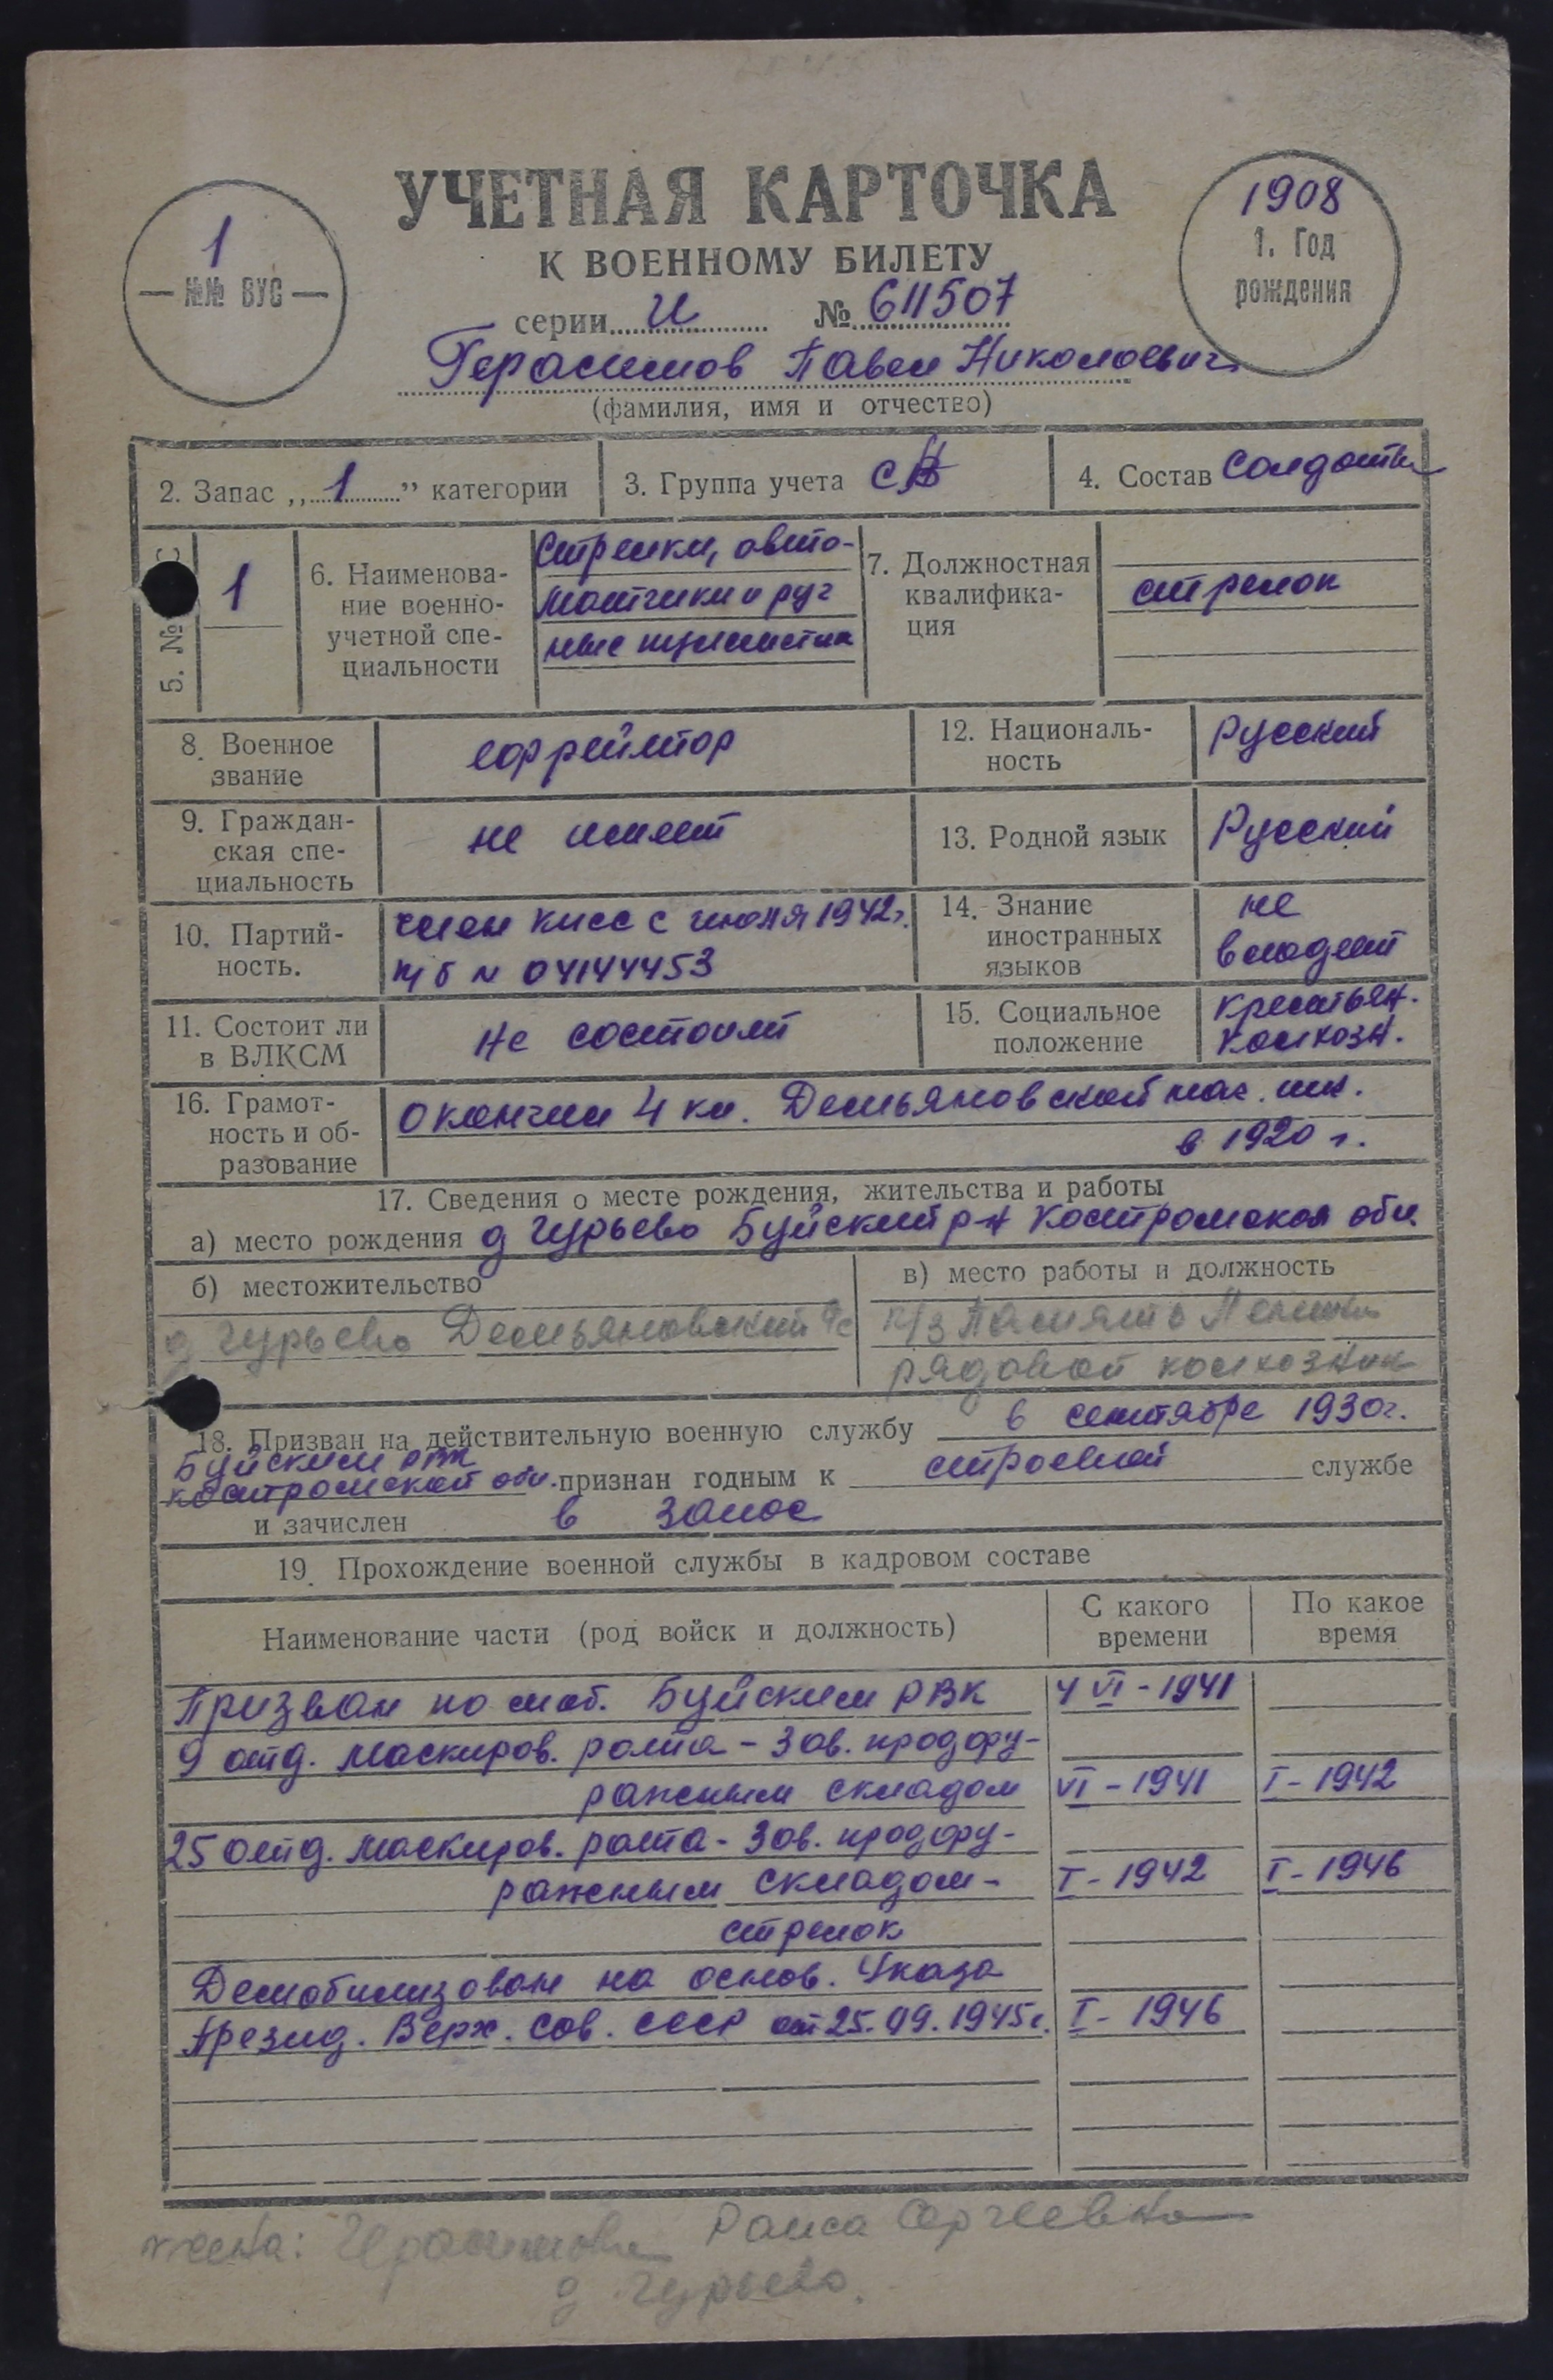 УЧЕТНАЯ КАРТОЧКА
К ВОЕННОМУ БИЛЕТУ
1
— №№ ВУС —
1908
1. Год
рождения
серии И № 611507
Герасимов Павел Николаевич
(фамилия, имя и отчество)
2. Запас „1” категории
3. Группа учета СА
4. Состав Солдаты
5. № С
1
6. Наименова-
ние военно-
учетной спе-
циальности
Стрелки, авто-
матчики и руч
ные пулеметчи
7. Должностная
квалифика-
ция
стрелок
8. Военное
звание
ефрейтор
12. Националь-
ность
Русский
9. Граждан-
ская спе-
циальность
не имеет
13. Родной язык
Русский
10. Партий-
ность.
член КПСС с июля 1942г.
п/б № 04144453
14. Знание
иностранных
языков
не
владеет
11. Состоит ли
в ВЛКСМ
не состоит
15. Социальное
положение
крестьян.
колхозн.
16. Грамот-
ность и об-
разование
окончил 4 кл. Демьяновской нач. шк.
в 1920 г.
17. Сведения о месте рождения, жительства и работы
а) место рождения д Гурьево Буйский р-н Костромская обл.
б) местожительство
д Гурьево Демьяновский с/с
в) место работы и должность
к/з Память Ленина
рядовой колхозник
18. Призван на действительную военную службу в сентябре 1930г.
Буйским РВК
Костромской обл. признан годным к строевой службе
и зачислен в запас
19. Прохождение военной службы в кадровом составе
Наименование части (род войск и должность)
С какого
времени
По какое
время
Призван по моб. Буйским РВК 4 VI - 1941
9 отд. маскиров. рота - Зав. продфу-
ражным складом VI - 1941 I - 1942
25 отд. маскиров. рота - Зав. продфу-
ражным складом - I - 1942 I - 1946
стрелок
Демобилизован на основ. Указа
Презид. Верх. Сов. СССР от 25.09.1945г. I - 1946
жена: Герасимова Раиса Сергеевна
д Гурьево.